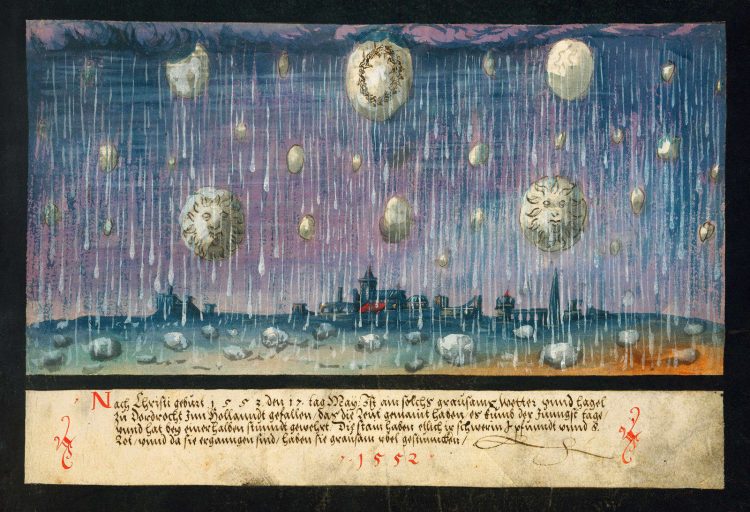 Nach Christi gebürt 1 5 5 2 den 17 tag May Ist ain solchs grausams wetter unnd hagel
zu Dordrecht Inn Hollanndt gefallen, das die Leut gemaint haben es kumb der Jüngst tage
unnd hat bey einer halben stunndt gewehrt. Die stain haben ettlich gewegen I pfundt unnd 8
Lot, unnd da sie zergangen sind, haben sie grausam ubel gestunncken /
· 1 5 5 2 ·